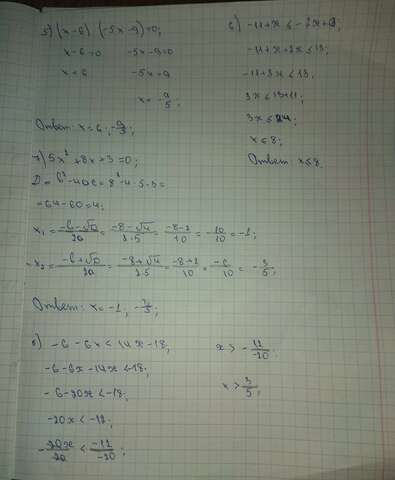 5) (x-6) (-5x-9)=0;
x-6=0 -5x-9=0
x=6 -5x=9
x=-9/5;
Ответ: x=6; -9/5;
7) 5x²+8x+3=0;
D=b²-4ac=8²-4·5·3=
=64-60=4;
x₁=(-b-√D)/2a=(-8-√4)/2·5=(-8-2)/10=-10/10=-1;
x₂=(-b+√D)/2a=(-8+√4)/2·5=(-8+2)/10=-6/10=-3/5;
Ответ: x=-1,
-6-6x<14x-18;
-6-6x-14x<-18;
-6-20x<-18;
-20x<-12;
x>3/5;
6) -11+x≤-2x+13;
-11+x+2x≤13;
-11+3x≤13;
3x≤13+11;
3x≤24;
x≤8;
Ответ x≤8.